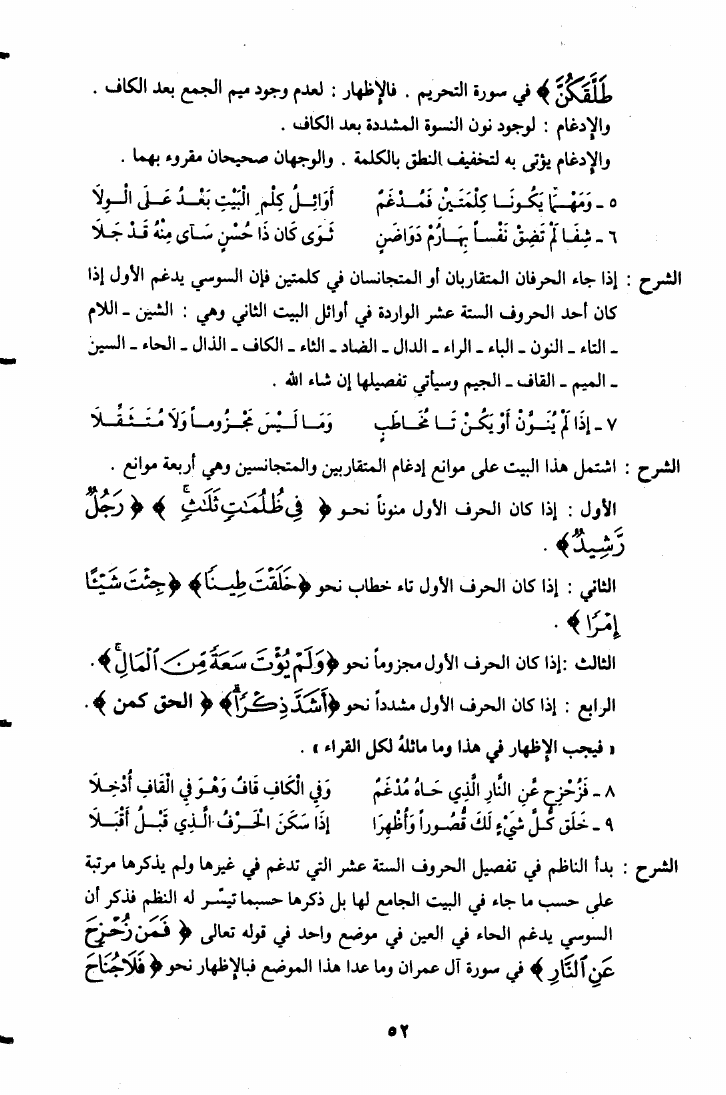 طَلَّقَكُنَّ ﴾ في سورة التحريم . فالإظهار : لعدم وجود ميم الجمع بعد الكاف .
والإدغام : لوجود نون النسوة المشددة بعد الكاف .
والإدغام يؤتى به لتخفيف النطق بالكلمة . والوجهان صحيحان مقروء بهما .
٥ ـ وَمَهْمَا يَكُونَـا كِلْمَتَيْنِ فَمُـدْغَمٌ أَوَائِـلُ كِلْمِ الْبَيْتِ بَعْـدُ عَـلَى الْـوِلَا
٦ ـ شِفَـا لَمْ تَضِقْ نَفْسـاً بِهَـا رُمْ دَوَا ضَنٍ ثَـوَى كَانَ ذَا حُسْنٍ سَـأَى مِنْهُ قَـدْ جَـلَا
الشرح : إذا جاء الحرفان المتقاربان أو المتجانسان في كلمتين فإن السوسي يدغم الأول إذا
كان أحد الحروف الستة عشر الواردة في أوائل البيت الثاني وهي : الشين ـ اللام
ـ التاء ـ النون ـ الباء ـ الراء ـ الدال ـ الضاد ـ الثاء ـ الكاف ـ الذال ـ الحاء ـ السين
ـ الميم ـ القاف ـ الجيم وسيأتي تفصيلها إن شاء الله .
٧ ـ إِذَا لَمْ يُنَـوَّنْ أَوْ يَكُـنْ تَـا مُخَـاطَبٍ وَمَـا لَـيْـسَ مَجْـزُومـاً وَلَا مُـتَـثَـقِّـلَا
الشرح : اشتمل هذا البيت على موانع إدغام المتقاربين والمتجانسين وهي أربعة موانع .
الأول : إذا كان الحرف الأول منوناً نحـو ﴿ فِي ظُلُمَٰتٍ ثَلَٰثٍ ۚ ﴾ ﴿ رَجُلٌ
رَّشِيدٌ ﴾ .
الثاني : إذا كان الحرف الأول تاء خطاب نحو ﴿ خَلَقْتَ طِينًا ﴾ ﴿ جِئْتَ شَيْـًٔا
إِمْرًا ﴾ .
الثالث :إذا كان الحرف الأول مجزوماً نحو ﴿ وَلَمْ يُؤْتَ سَعَةً مِّنَ ٱلْمَالِ ۚ ﴾.
الرابع : إذا كان الحرف الأول مشدداً نحو ﴿ أَشَدَّ ذِكْرًا ۗ ﴾ ﴿ الحق كمن ﴾ .
« فيجب الإظهار في هذا وما ماثلهُ لكل القراء » .
٨ ـ فَزُحْزِحَ عَنِ النَّارِ الَّذِي حَـاهُ مُدْغَمٌ وَفِي الْكَافِ قَافٌ وَهْـوَ فِي الْقَافِ أُدْخِـلَا
٩ ـ خَلَقَ كُـلَّ شَيْءٍ لَكَ قُصُـوراً وَأَظْهِرَا إِذَا سَكَنَ الْحَـرْفُ الَّـذِي قَبْـلُ أَقْبَـلَا
الشرح : بدأ الناظم في تفصيل الحروف الستة عشر التي تدغم في غيرها ولم يذكرها مرتبة
على حسب ما جاء في البيت الجامع لها بل ذكرها حسبما تيسّـر له النظم فذكر أن
السوسي يدغم الحاء في العين في موضع واحد في قوله تعالى ﴿ فَمَن زُحْزِحَ
عَنِ ٱلنَّارِ ﴾ في سورة آل عمران وما عدا هذا الموضع فبالإظهار نحو ﴿ فَلَا جُنَاحَ
٥٢